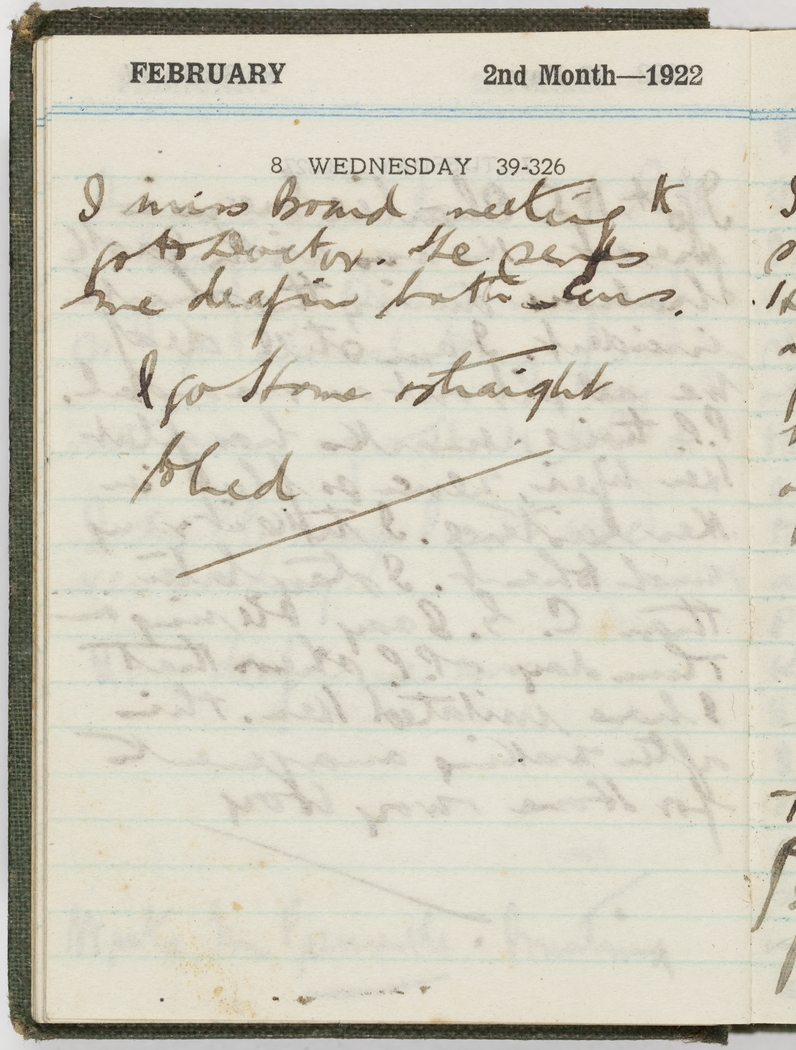 FEBRUARY 2nd Month—1922
8 WEDNESDAY 39-326
I miss Board meeting to
go to Doctor. He
me deaf in both ears.
I go Home straight
to bed